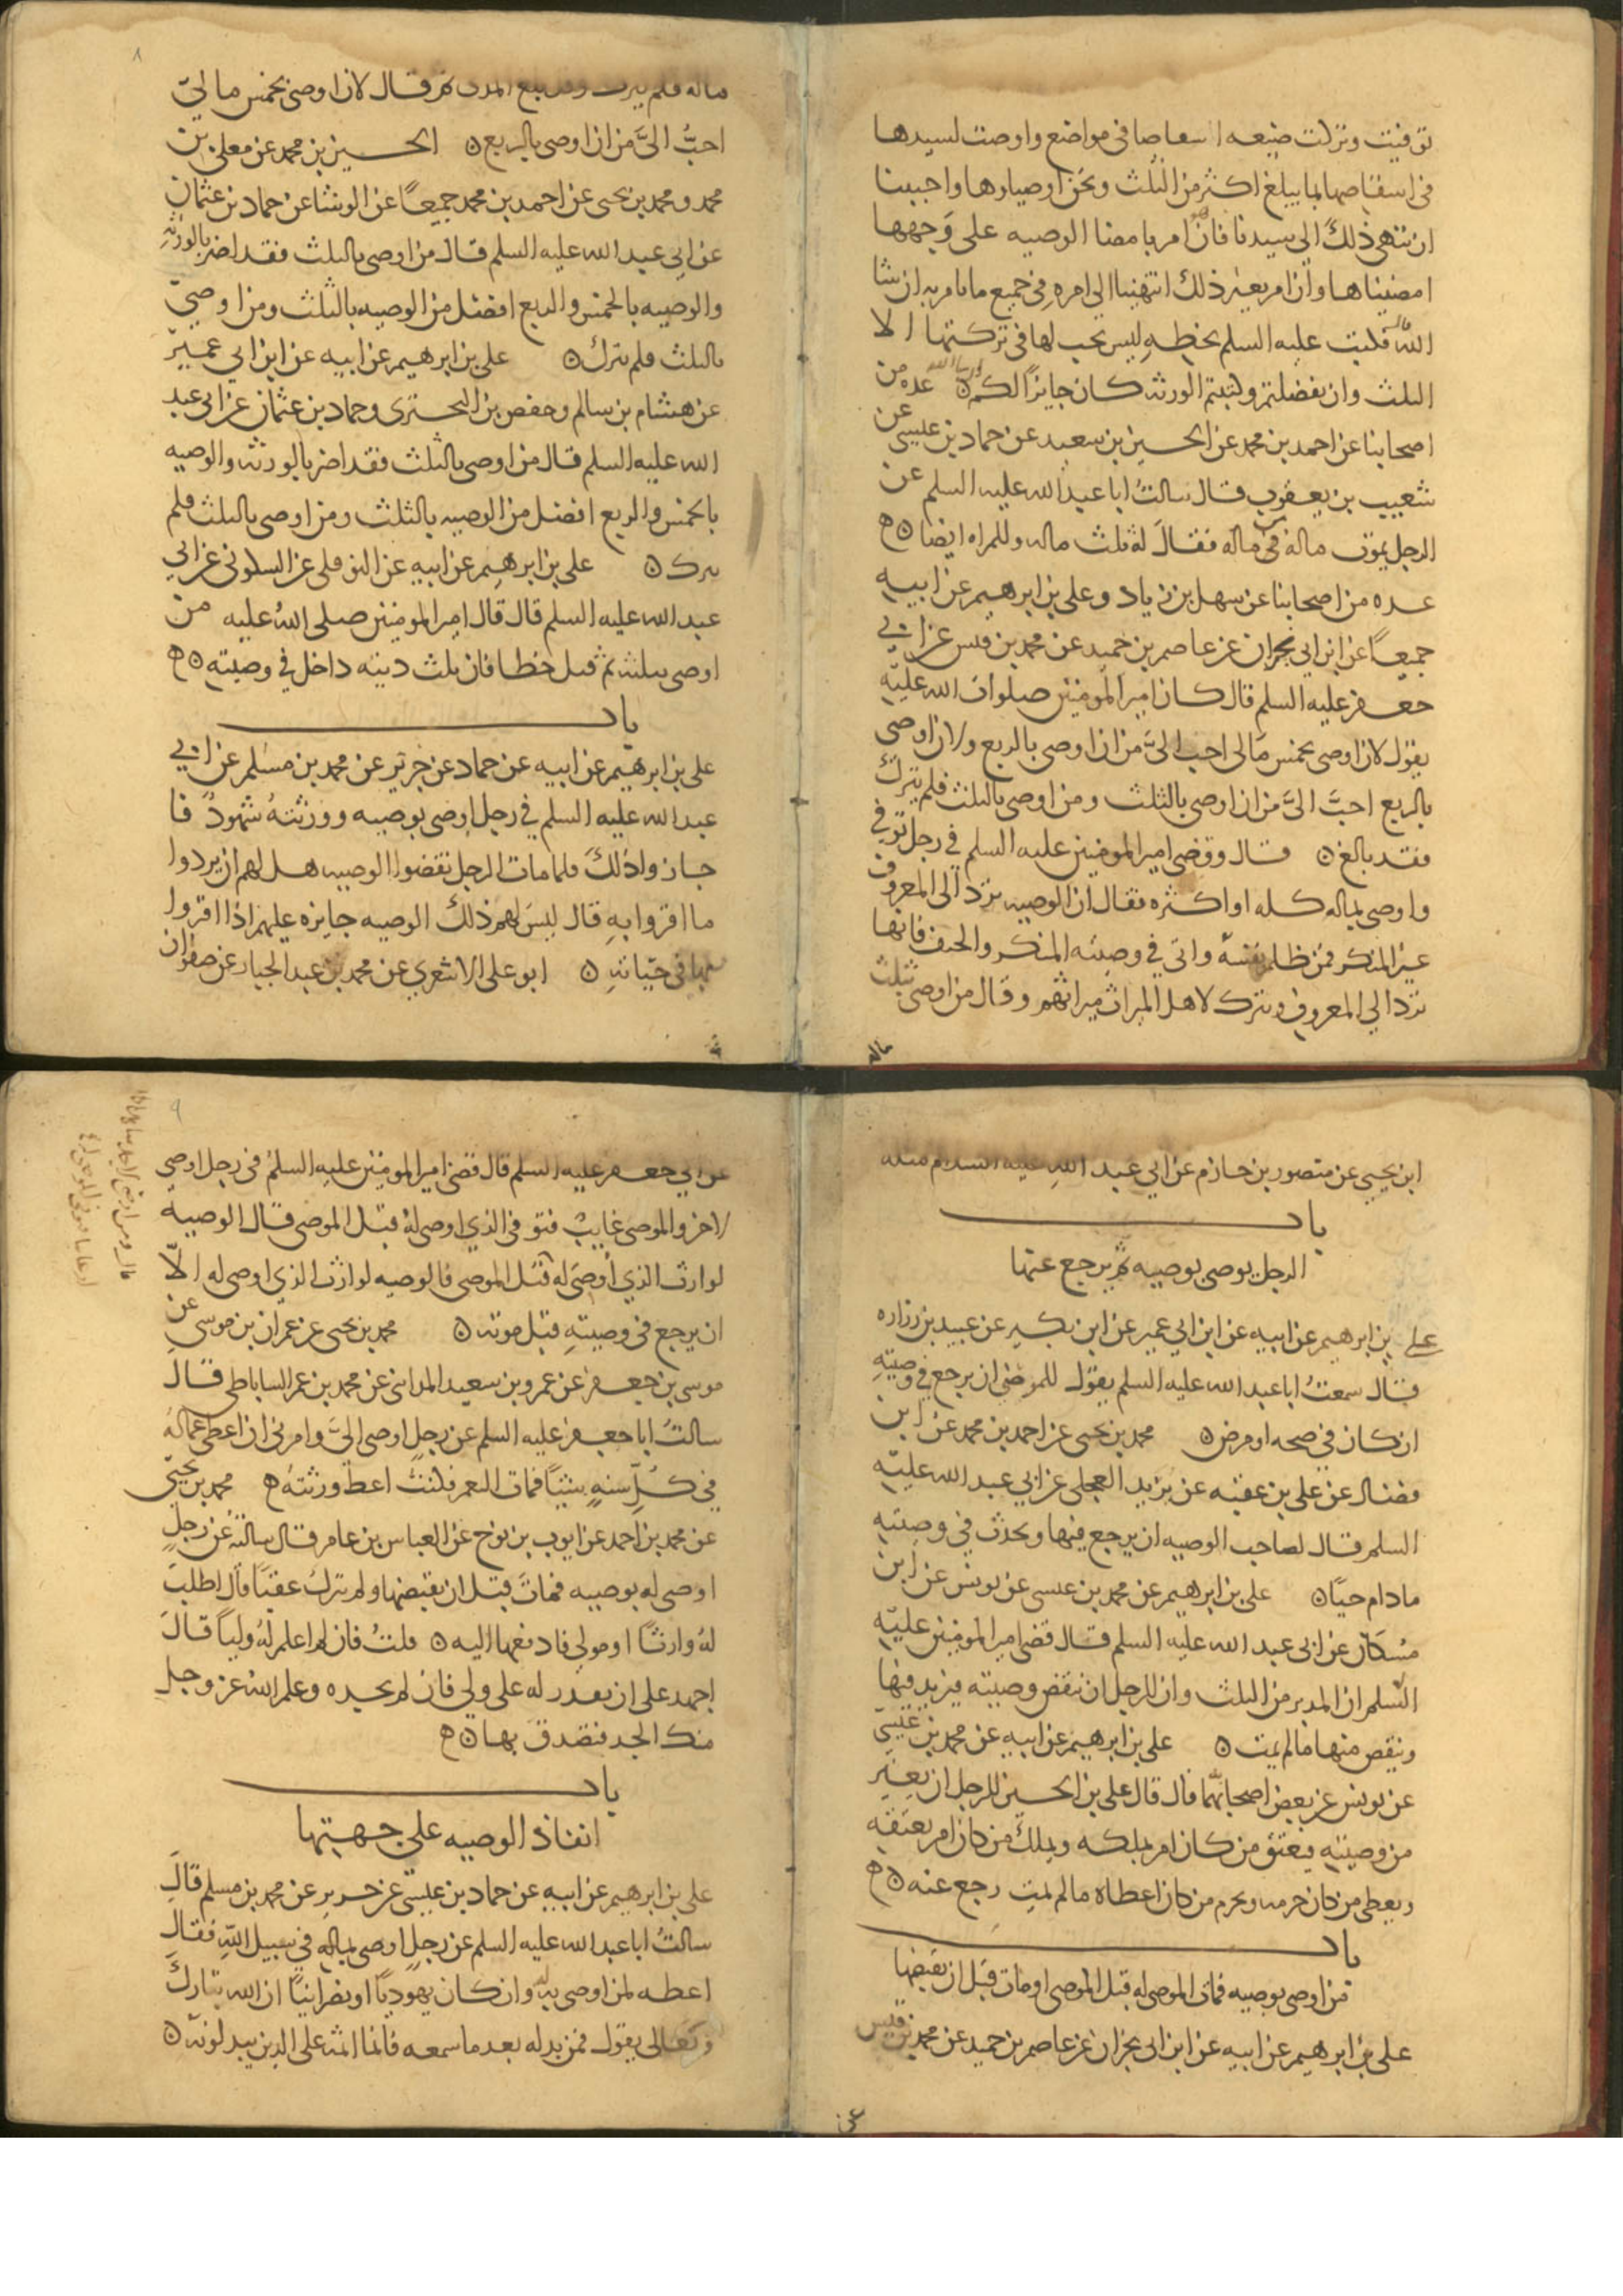 توفيت وتركت ضيعه اسعاصا في مواضع واوصت لسيدها
في اسقاصها لما يبلغ اكثر من الثلث ونحن اوصياوها واحببنا
ان ننهي ذلك الي سيدنا فان امر بامضا الوصيه علي وجهها
امضيناها وان امر بغير ذلك انتهينا الي امره في جميع ما يامر به ان شا
الله قال فكتب عليه السلم بخطه ليس يجب لها في تركتها الا
الثلث وان تفضلتم وكنتم الورثه كان جايزا لكم ۞ عده من
اصحابنا عن احمد بن محمد عن الحسين بن سعيد عن حماد بن عيسى عن
شعيب بن يعقوب قال سالت ابا عبد الله عليه السلم عن
الرجل يموت ماله من ماله فقال له ثلث ماله وللمراه ايضا ۞
عده من اصحابنا عن سهل بن زياد وعلي بن ابرهيم عن ابيه
جميعا عن ابن ابي نجران عن عاصم بن حميد عن محمد بن قيس عن ابي
جعفر عليه السلم قال كان امير المومنين صلوات الله عليه
يقول لان اوصي بخمس مالي احب الي من ان اوصي بالربع ولان اوصي
بالربع احب الي من ان اوصي بالثلث ومن اوصي بالثلث فلم يترك
فقد بالغ ۞ قال وقضي امير المومنين عليه السلم في رجل توفي
واوصي بماله كله او اكثره فقال ان الوصيه ترد الي المعروف
غير المنكر فمن ظلم نفسه واتي في وصيته المنكر والحيف فانها
ترد الي المعروف ويترك لاهل الميراث ميراثهم وقال من اوصي بثلث
ماله
٨
ماله فلم يترك وقد بلغ المدى ثم قال لان اوصي بخمس مالي
احب الي من ان اوصي بالربع ۞ الحسين بن محمد عن معلى بن
محمد ومحمد بن يحيى عن احمد بن محمد جميعا عن الوشا عن حماد بن عثمان
عن ابي عبد الله عليه السلم قال من اوصي بالثلث فقد اضر بالورثه
والوصيه بالخمس والربع افضل من الوصيه بالثلث ومن اوصي
بالثلث فلم يترك ۞ علي بن ابرهيم عن ابيه عن ابن ابي عمير
عن هشام بن سالم وحفص بن البختري وحماد بن عثمان عن ابي عبد
الله عليه السلم قال من اوصي بالثلث فقد اضر بالورثه والوصيه
بالخمس والربع افضل من الوصيه بالثلث ومن اوصي بالثلث فلم
يترك ۞ علي بن ابرهيم عن ابيه عن النوفلي عن السكوني عن ابي
عبد الله عليه السلم قال قال امير المومنين صلى الله عليه من
اوصي بثلثه ثم قتل خطا فان ثلث ديته داخل في وصيته ۞
باب
علي بن ابرهيم عن ابيه عن حماد عن حريز عن محمد بن مسلم عن ابي
عبد الله عليه السلم في رجل اوصي بوصيه وورثته شهود فا
جازوا ذلك فلما مات الرجل نقضوا الوصيه هل لهم ان يردوا
ما اقروا به قال ليس لهم ذلك الوصيه جايزه عليهم اذا اقروا
بها في حياته ۞ ابو علي الاشعري عن محمد بن عبد الجبار عن صفوان
ابن يحيى عن منصور بن حازم عن ابي عبد الله عليه السلام مثله
باب
الرجل يوصي بوصيه ثم يرجع عنها
علي بن ابرهيم عن ابيه عن ابن ابي عمير عن ابن بكير عن عبيد بن زراره
قال سمعت ابا عبد الله عليه السلم يقول للموصي ان يرجع في وصيته
ان كان في صحه او مرض ۞ محمد بن يحيى عن احمد بن محمد عن ابن
فضال عن علي بن عقبه عن بريد العجلي عن ابي عبد الله عليه
السلم قال لصاحب الوصيه ان يرجع فيها ويحدث في وصيته
ما دام حيا ۞ علي بن ابرهيم عن محمد بن عيسى عن يونس عن ابن
مسكان عن ابي عبد الله عليه السلم قال قضي امير المومنين عليه
السلم ان المدبر من الثلث وان للرجل ان ينقض وصيته فيزيد فيها
وينقص منها ما لم يمت ۞ علي بن ابرهيم عن ابيه عن محمد بن عيسى
عن يونس عن بعض اصحابهما قال قال علي بن الحسين للرجل ان يغير
من وصيته فيعتق من كان امر بملكه ويملك من كان امر بعتقه
ويعطي من كان حرمه ويحرم من كان اعطاه ما لم يمت رجع عنه ۞
باب
من اوصي بوصيه فمات الموصي له قبل الموصي او مات قبل ان يقبضها
علي بن ابرهيم عن ابيه عن ابن ابي نجران عن عاصم بن حميد عن محمد بن قيس
عن
٩
عن ابي جعفر عليه السلم قال قضي امير المومنين عليه السلم في رجل اوصي
لاخر والموصي غايب فتوفي الذي اوصي له قبل الموصي قال الوصيه
لوارث الذي اوصي له قبل الموصي فالوصيه لوارث الذي اوصي له الا
ان يرجع في وصيته قبل موته ۞ محمد بن يحيى عن عمران بن موسى عن
موسى بن جعفر عن عمرو بن سعيد المدايني عن محمد بن عمر الساباطي قال
سالت ابا جعفر عليه السلم عن رجل اوصي الي وامرني ان اعطي عما له
في كل سنه شيئا فمات العم فكتب اعط ورثته ۞ محمد بن يحيى
عن محمد بن احمد عن ايوب بن نوح عن العباس بن عامر قال سالته عن رجل
اوصي له بوصيه فمات قبل ان يقبضها ولم يترك عقبا قال اطلب
له وارثا او مولي فادفعها اليه ۞ قلت فان لم اعلم له وليا قال
اجهد علي ان تقدر له علي ولي فان لم تجده وعلم الله عز وجل
منك الجد فتصدق بها ۞
باب
انفاذ الوصيه علي جهتها
علي بن ابرهيم عن ابيه عن حماد بن عيسى عن حريز عن محمد بن مسلم قال
سالت ابا عبد الله عليه السلم عن رجل اوصي بماله في سبيل الله فقال
اعطه لمن اوصي به له وان كان يهوديا او نصرانيا ان الله تبارك
وتعالي يقول فمن بدله بعد ما سمعه فانما اثمه علي الذين يبدلونه ۞